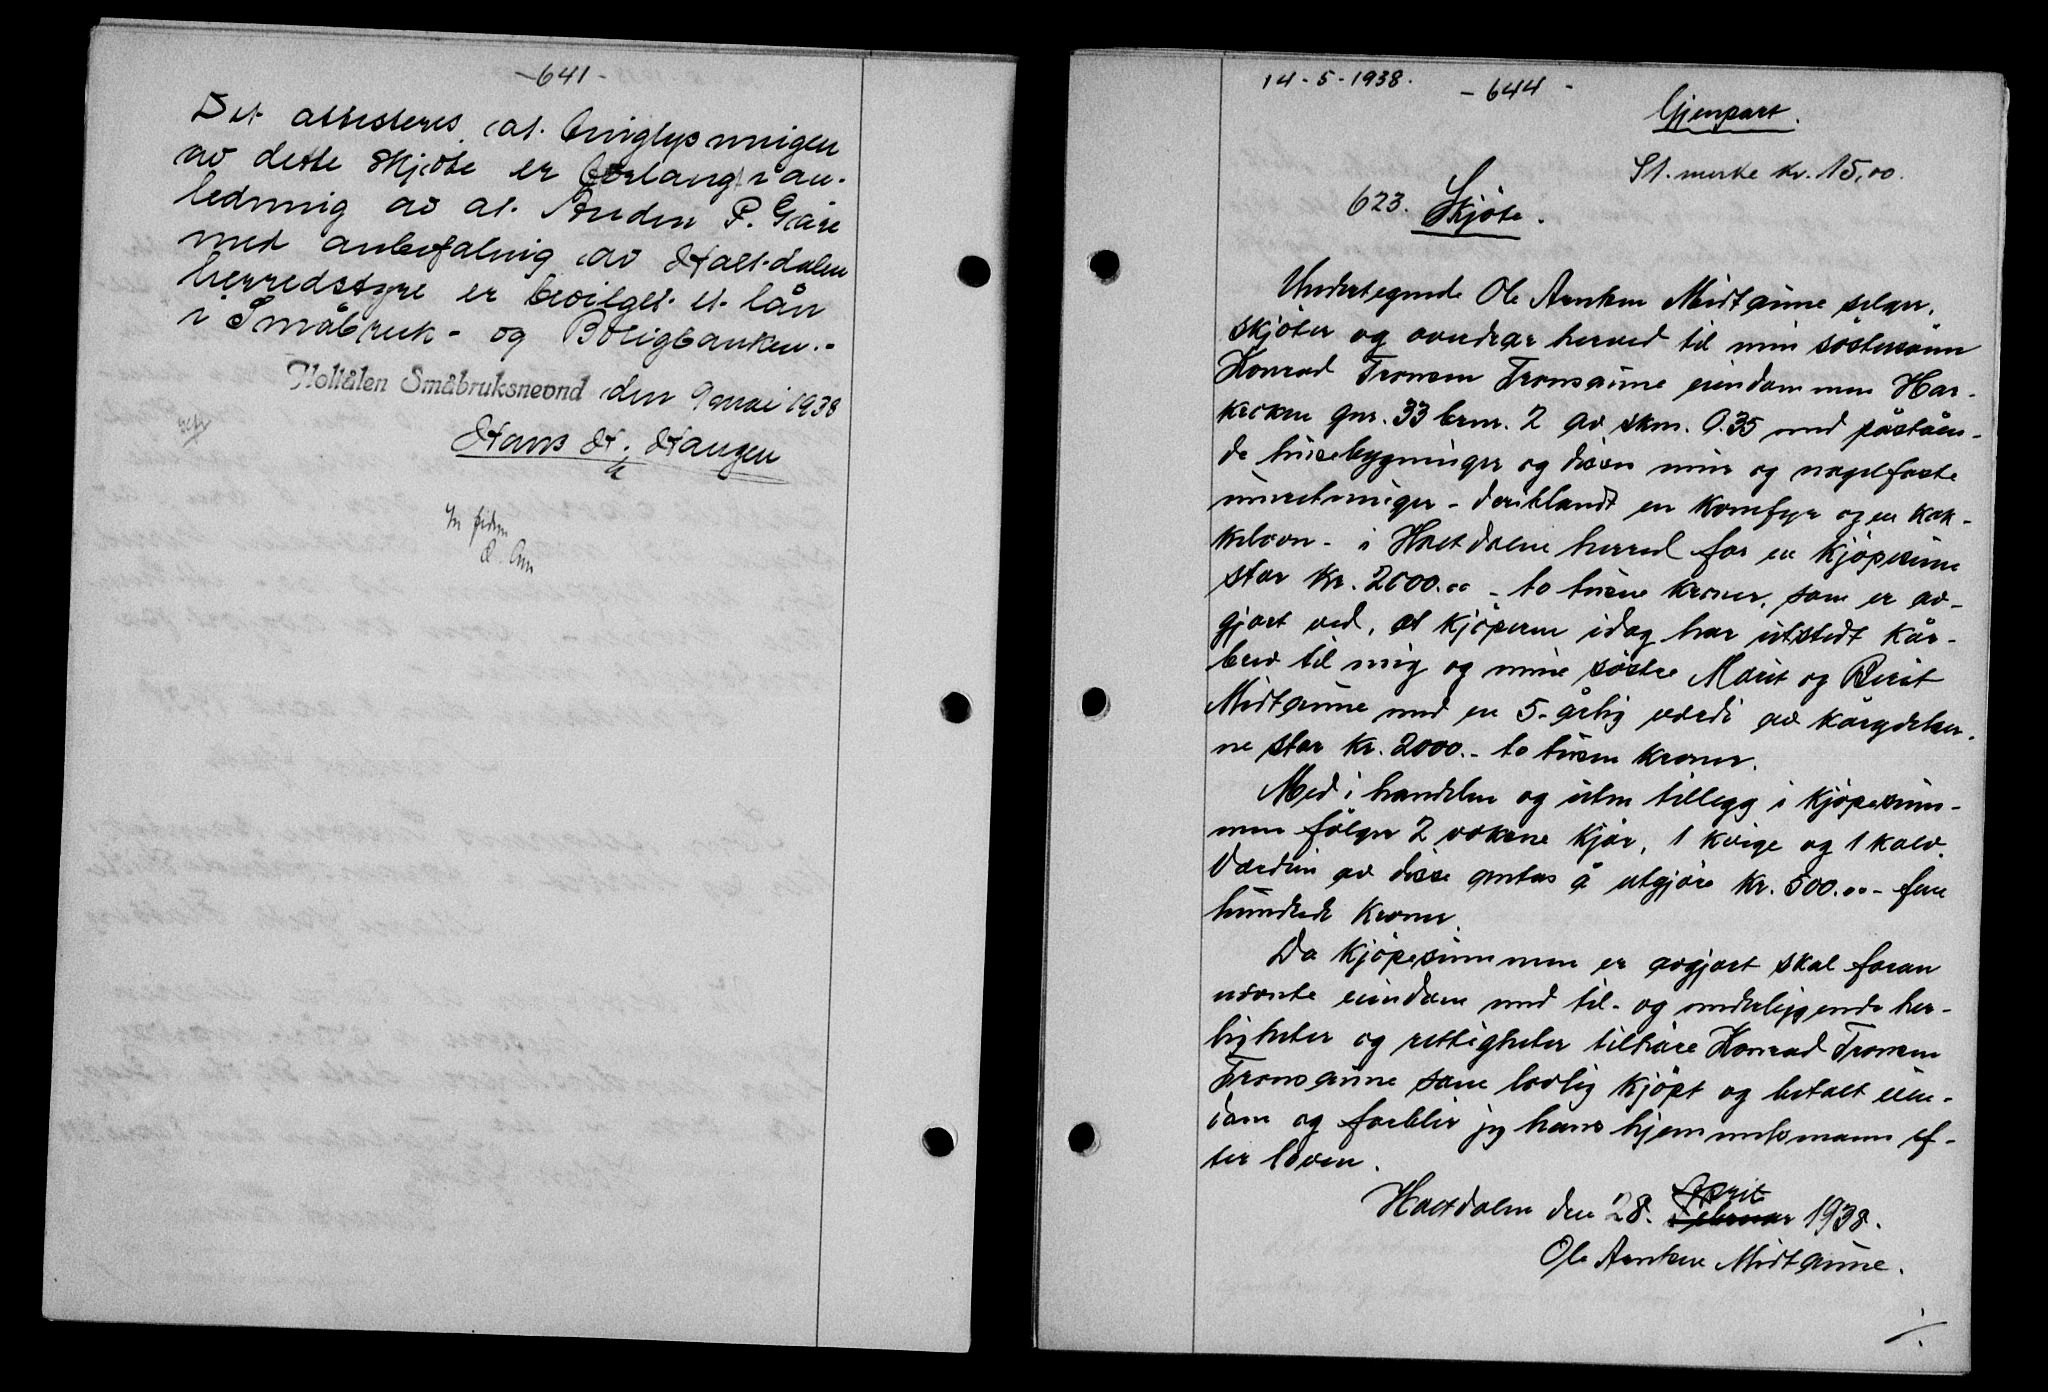 -641-
Det attesteres at tinglysningen
av dette skjøte er forlangt i an-
ledning av at Anden P. Gåre
med anbefalning av Haltdalen
herredstyre er bevilget et lån
i Småbruk- og Boligbanken.-
Holtålen Småbruksnevnd den 9 mai 1938
Hans H. Haugen
14-5-1938.
- 644 -
Gjenpart.
St. merke kr. 15,00.
623. Skjöte.
Undertegnede Ole Arntsen Midtaune selger,
skjöter og overdrar herved til min söstersönn
Konrad Tronsen Tronsaune eiendommen Har-
kroken gnr. 33 brnr. 2 av skm. 0.35 med påståen-
de husebygninger og disses mur og nagelfaste
innretninger - deriblandt en komfyr og en kak-
kelovn - i Haltdalen herred for en kjöpesum
stor kr. 2000.00 - to tusen kroner, som er av-
gjort ved, at kjöperen idag har utstedt kår-
brev til mig og mine söstre Marit og Berit
Midtaune med en 5-årlig verdi av kårydelser-
ne stor kr. 2000.- to tusen kroner.
Med i handelen og uten tillegg i kjöpesum-
men fölger 2 voksne kjör, 1 kvige og 1 kalv.
Værdien av disse antas å utgjöre kr. 500.00 - fem
hundrede kroner.
Da kjöpesummen er avgjort skal foran
nevnte eiendom med til- og underliggende her-
ligheter og rettigheter tilhöre Konrad Tronsen
Tronsaune som lovlig kjöpt og betalt eien-
dom og forblir jeg hans hjemmelsmann ef-
ter loven.
april
Haltdalen den 28. Februar 1938.
Ole Arntsen Midtaune.
./.